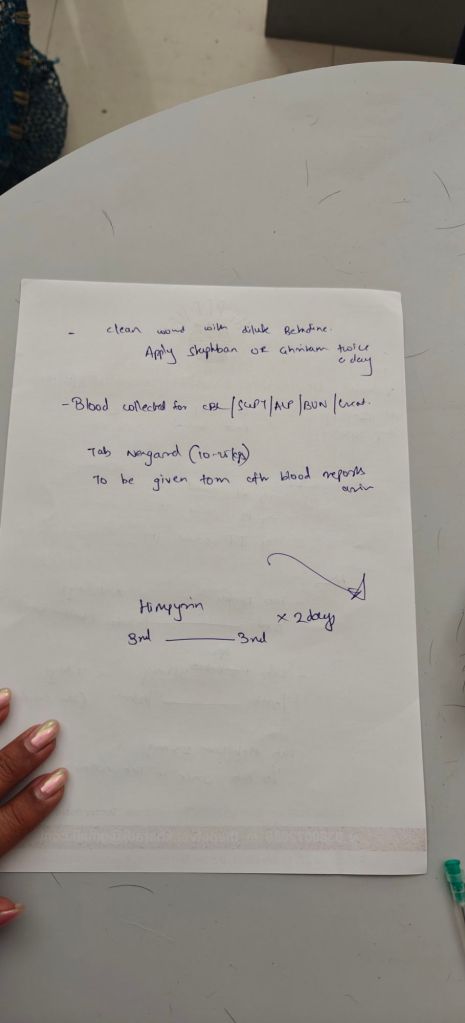 - clean wound with dilute Betadine.
Apply Staphban OR twice
a day
- Blood collected for CBC/SGPT/ALP/BUN/Creat.
Tab Nexgard (10-25kgs)
To be given tom after blood reports
Himpyrin
3ml — 3ml x 2 days